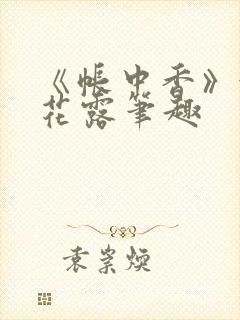 《帐中香》
花露笔趣
袁崇焕